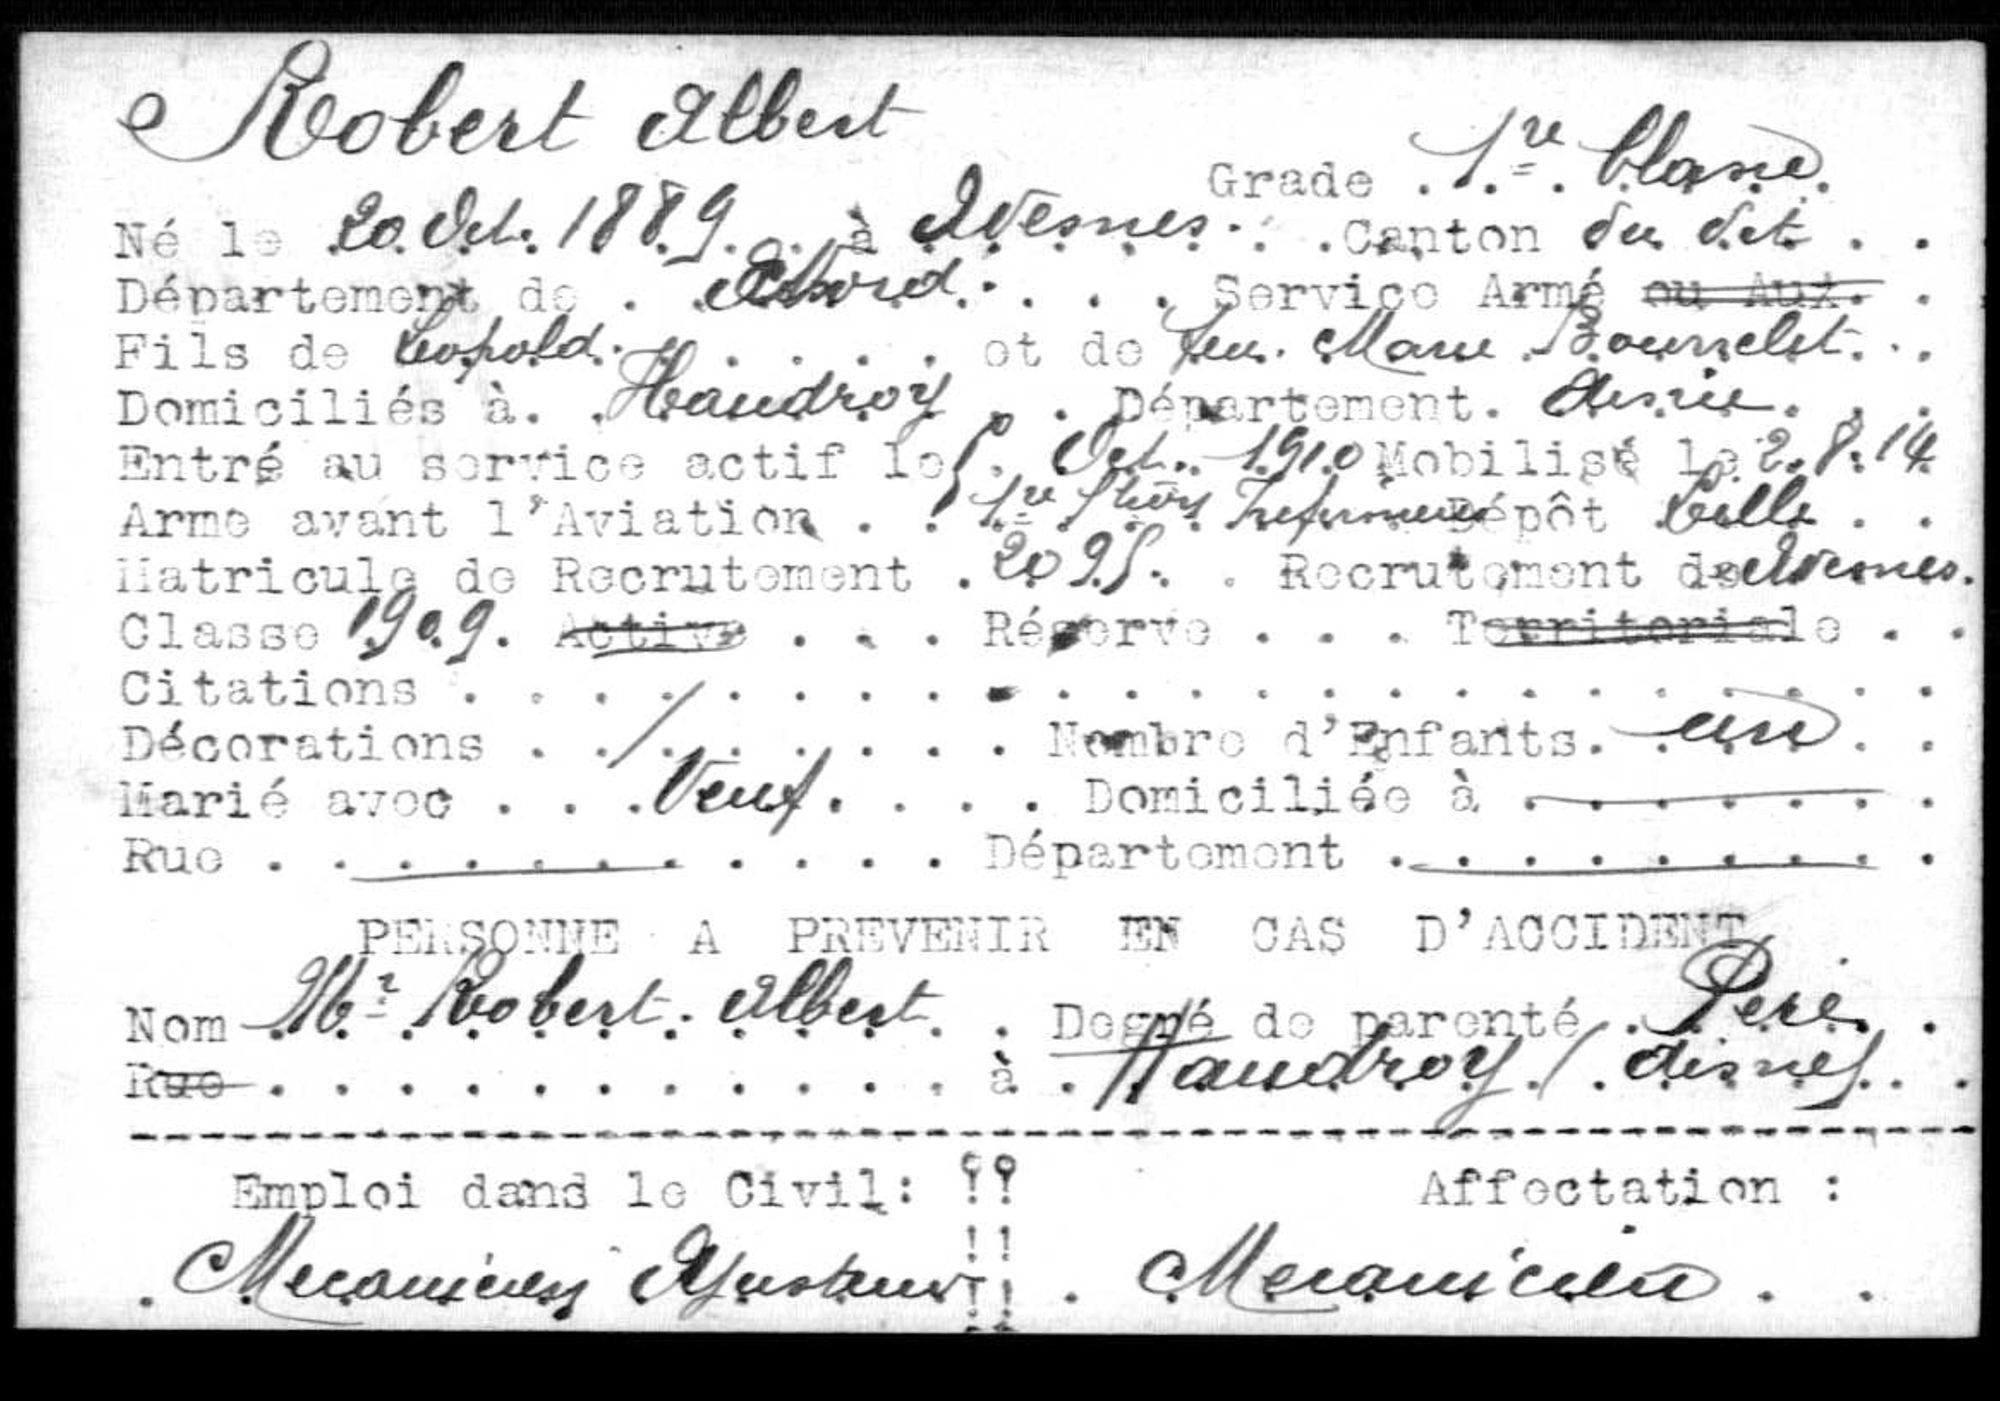 Robert Albert
Grade 1re Classe
Né le 20 Oct. 1889 à Avesnes Canton du dit
Département de Nord Service Armé ou Aux.
Fils de Léopold et de feu Marie Bourrelet
Domiciliés à Haudroy Département Aisne
Entré au service actif le 5 Oct. 1910 Mobilisé le 2.8.14
Arme avant l'Aviation 1re Infirmiers Dépôt Lille
Matricule de Recrutement 2095 Recrutement de Avesnes
Classe 1909 Active Réserve Territoriale
Citations
Décorations / Nombre d'Enfants un
Marié avec Veuf Domiciliée à
Rue Département
PERSONNE A PREVENIR EN CAS D'ACCIDENT
Nom Mr Robert Albert Degré de parenté Père
Rue à Haudroy (Aisne)
Emploi dans le Civil: Affectation :
Mécanicien Ajusteur Mécanicien